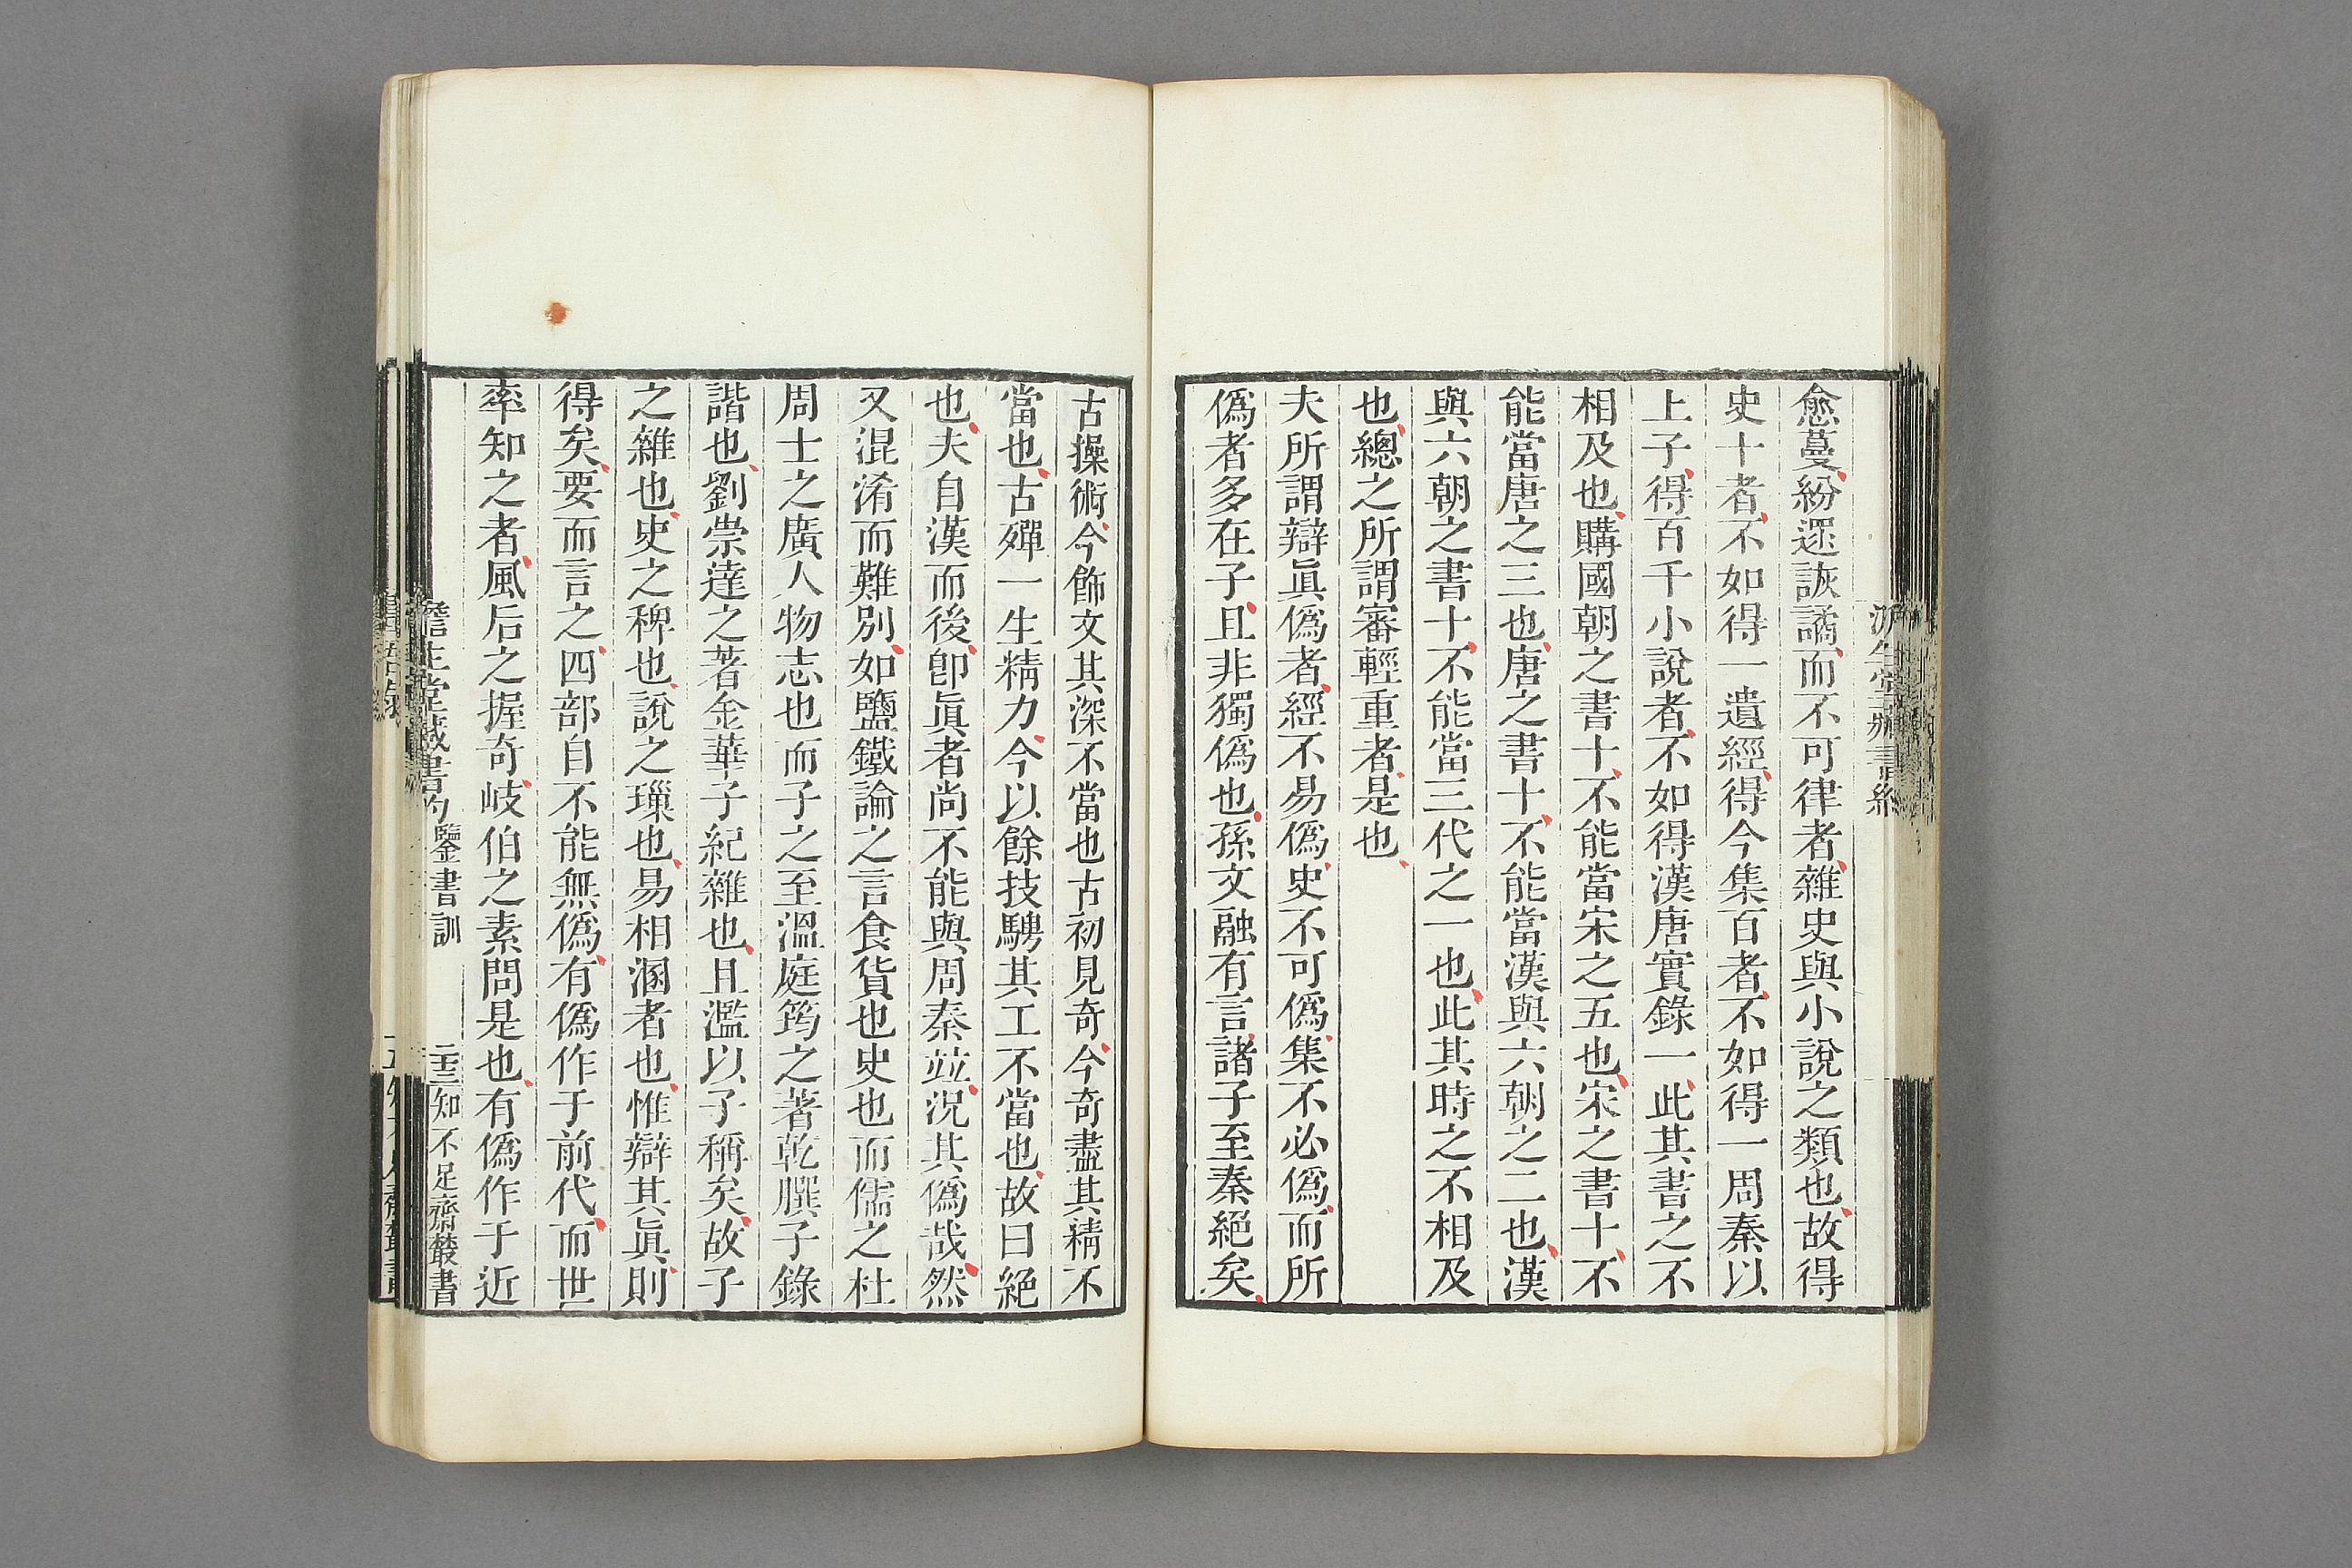 愈蔓紛遝詼譎而不可律者雜史與小說之類也故得
史十者不如得一遺經得今集百者不如得一周秦以
上子得百千小說者不如得漢唐實錄一此其書之不
相及也購國朝之書十不能當宋之五也宋之書十不
能當唐之三也唐之書十不能當漢與六朝之二也漢
與六朝之書十不能當三代之一也此其時之不相及
也總之所謂審輕重者是也
夫所謂辯眞僞者經不易僞史不可僞集不必僞而所
僞者多在子且非獨僞也孫文融有言諸子至秦絕矣
古操術今飾文其深不當也古初見奇今奇盡其精不
當也古殫一生精力今以餘技騁其工不當也故曰絕
也夫自漢而後卽眞者尚不能與周秦竝況其僞哉然
又混淆而難別如鹽鐵論之言食貨也史也而儒之杜
周士之廣人物志也而子之至溫庭筠之著乾𦠆子錄
諧也劉崇逹之著金華子紀雜也且濫以子稱矣故子
之雜也史之稗也說之璅也易相溷者也惟辯其眞則
得矣要而言之四部自不能無僞有僞作于前代而世
率知之者風后之握奇岐伯之素問是也有僞作于近
澹生堂藏書約 鑒書訓 二十三 知不足齋叢書